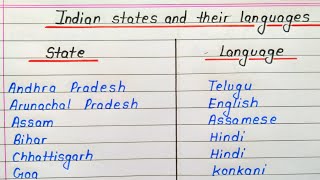 Indian states and their languages
State Language
Andhra Pradesh Telugu
Arunachal Pradesh English
Assam Assamese
Bihar Hindi
Chhattisgarh Hindi
Goa Konkani